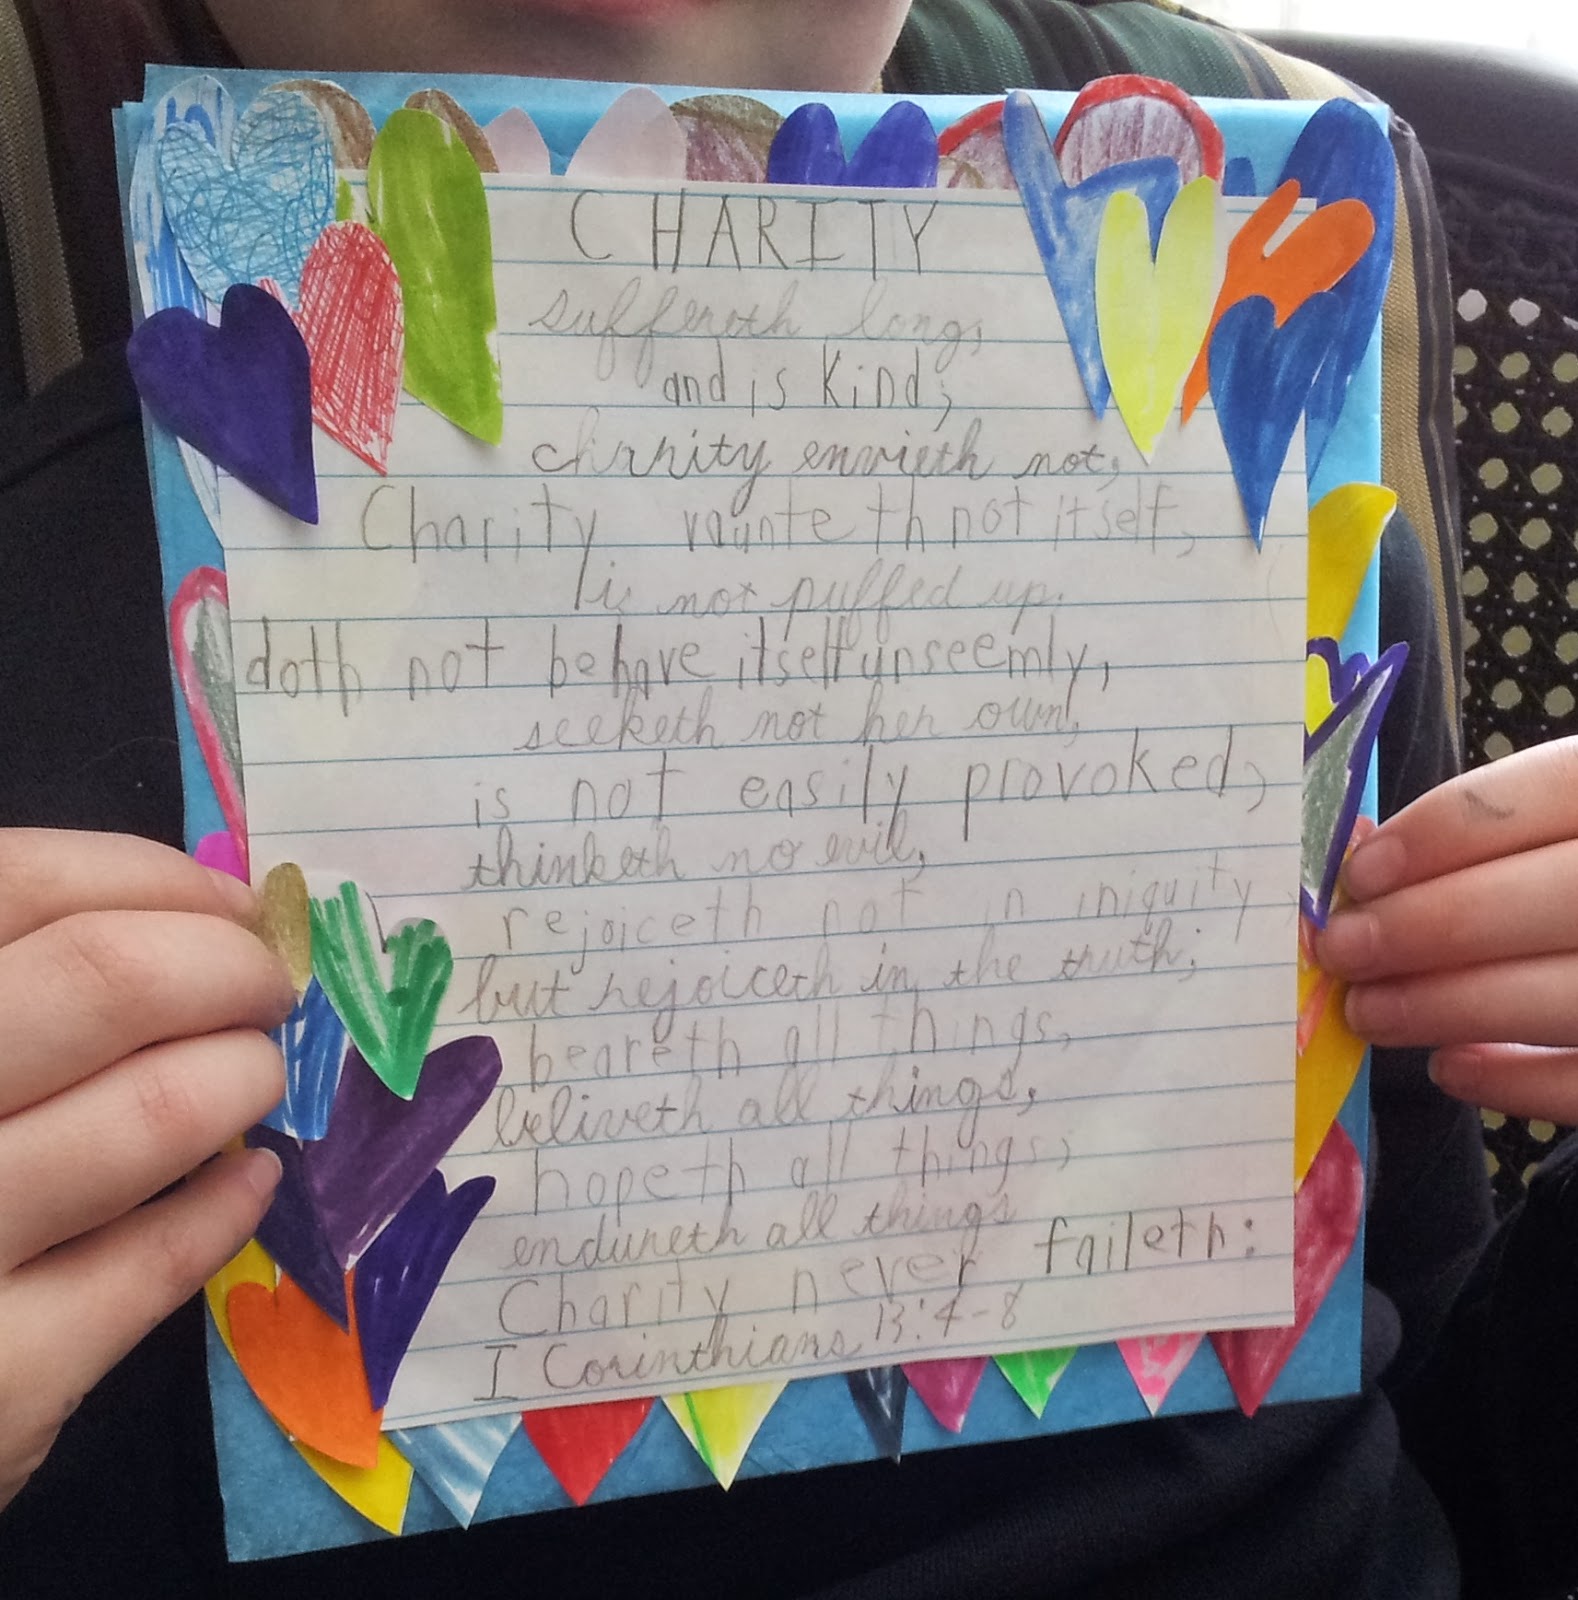 CHARITY
suffereth long,
and is kind;
charity envieth not,
Charity vaunteth not itself,
is not puffed up.
doth not behave itself unseemly,
seeketh not her own,
is not easily provoked,
thinketh no evil,
rejoiceth not in iniquity,
but rejoiceth in the truth;
beareth all things,
beliveth all things,
hopeth all things,
endureth all things
Charity never faileth:
I Corinthians 13:4-8